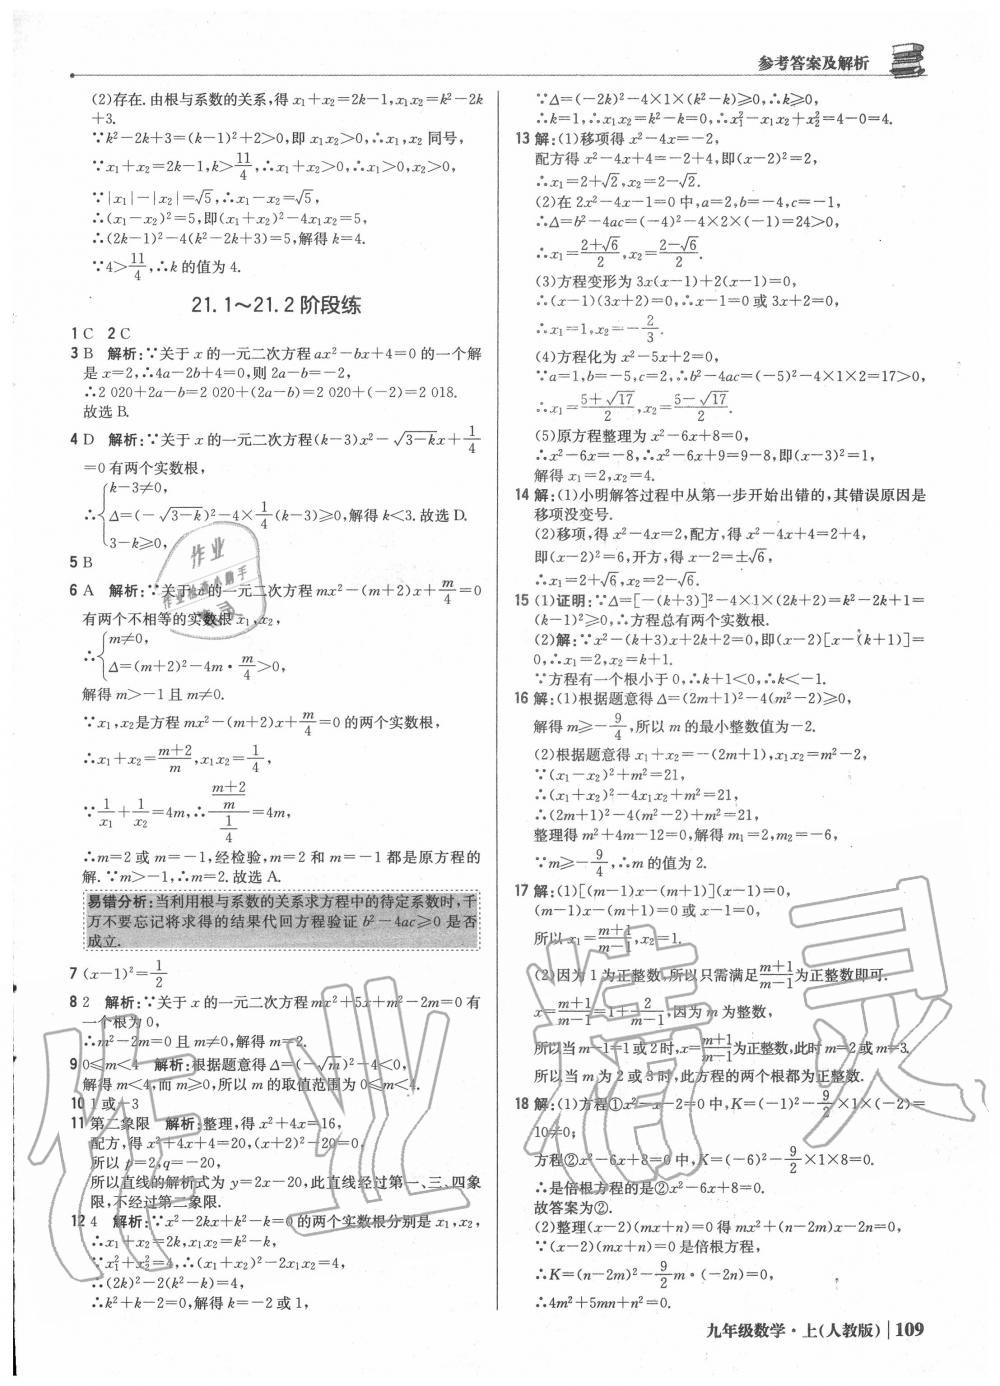 参考答案及解析
(2)存在.由根与系数的关系,得 x₁+x₂=2k-1,x₁x₂=k²-2k
+3.
∵k²-2k+3=(k-1)²+2>0,即 x₁x₂>0,∴x₁,x₂ 同号,
∵x₁+x₂=2k-1,k>11/4,∴x₁+x₂>0,∴x₁>0,x₂>0,
∵|x₁|-|x₂|=√5,∴x₁-x₂=√5,
∴(x₁-x₂)²=5,即(x₁+x₂)²-4x₁x₂=5,
∴(2k-1)²-4(k²-2k+3)=5,解得 k=4.
∵4>11/4,∴k 的值为 4.
21.1~21.2 阶段练
1 C 2 C
3 B 解析:∵关于 x 的一元二次方程 ax²-bx+4=0 的一个解
是 x=2,∴4a-2b+4=0,则 2a-b=-2,
∴2 020+2a-b=2 020+(2a-b)=2 020+(-2)=2 018.
故选 B.
4 D 解析:∵关于 x 的一元二次方程(k-3)x²-√(3-k)x+1/4
=0 有两个实数根,
∴{k-3≠0,
Δ=(-√(3-k))²-4×1/4(k-3)≥0,解得 k<3.故选 D.
3-k≥0,
5 B
6 A 解析:∵关于 x 的一元二次方程 mx²-(m+2)x+m/4=0
有两个不相等的实数根 x₁,x₂,
∴{m≠0,
Δ=(m+2)²-4m·m/4>0,
解得 m>-1 且 m≠0.
∵x₁,x₂是方程 mx²-(m+2)x+m/4=0 的两个实数根,
∴x₁+x₂=(m+2)/m,x₁x₂=1/4,
∵1/x₁+1/x₂=4m,∴((m+2)/m)/(1/4)=4m,
∴m=2 或 m=-1,经检验,m=2 和 m=-1 都是原方程的
解.∵m>-1,∴m=2.故选 A.
易错分析:当利用根与系数的关系求方程中的待定系数时,千
万不要忘记将求得的结果代回方程验证 b²-4ac≥0 是否
成立.
7 (x-1)²=1/2
8 2 解析:∵关于 x 的一元二次方程 mx²+5x+m²-2m=0 有
一个根为 0,
∴m²-2m=0 且 m≠0,解得 m=2.
9 0≤m<4 解析:根据题意得 Δ=(-√m)²-4<0,
解得 m<4,而 m≥0,所以 m 的取值范围为 0≤m<4.
10 1 或 -3
11 第二象限 解析:整理,得 x²+4x=16,
配方,得 x²+4x+4=20,(x+2)²-20=0,
所以 p=2,q=-20,
所以直线的解析式为 y=2x-20,此直线经过第一、三、四象
限,不经过第二象限.
12 4 解析:∵x²-2kx+k²-k=0 的两个实数根分别是 x₁,x₂,
∴x₁+x₂=2k,x₁x₂=k²-k,
∵x₁²+x₂²=4,∴(x₁+x₂)²-2x₁x₂=4,
∴(2k)²-2(k²-k)=4,
∴k²+k-2=0,解得 k=-2 或 1,
∵Δ=(-2k)²-4×1×(k²-k)≥0,∴k≥0,
∴k=1,∴x₁x₂=k²-k=0,∴x₁²-x₁x₂+x₂²=4-0=4.
13 解:(1)移项得 x²-4x=-2,
配方得 x²-4x+4=-2+4,即(x-2)²=2,
∴x₁=2+√2,x₂=2-√2.
(2)在 2x²-4x-1=0 中,a=2,b=-4,c=-1,
∴Δ=b²-4ac=(-4)²-4×2×(-1)=24>0,
∴x₁=(2+√6)/2,x₂=(2-√6)/2.
(3)方程变形为 3x(x-1)+2(x-1)=0,
∴(x-1)(3x+2)=0,∴x-1=0 或 3x+2=0,
∴x₁=1,x₂=-2/3.
(4)方程化为 x²-5x+2=0,
∵a=1,b=-5,c=2,∴b²-4ac=(-5)²-4×1×2=17>0,
∴x₁=(5+√17)/2,x₂=(5-√17)/2.
(5)原方程整理为 x²-6x+8=0,
∴x²-6x=-8,∴x²-6x+9=9-8,即(x-3)²=1,
解得 x₁=2,x₂=4.
14 解:(1)小明解答过程中从第一步开始出错的,其错误原因是
移项没变号.
(2)移项,得 x²-4x=2,配方,得 x²-4x+4=2+4,
即(x-2)²=6,开方,得 x-2=±√6,
∴x₁=2+√6,x₂=2-√6.
15 (1)证明:∵Δ=[-(k+3)]²-4×1×(2k+2)=k²-2k+1=
(k-1)²≥0,∴方程总有两个实数根.
(2)解:∵x²-(k+3)x+2k+2=0,即(x-2)[x-(k+1)]=
0,∴x₁=2,x₂=k+1.
∵方程有一个根小于 0,∴k+1<0,∴k<-1.
16 解:(1)根据题意得 Δ=(2m+1)²-4(m²-2)≥0,
解得 m≥-9/4,所以 m 的最小整数值为-2.
(2)根据题意得 x₁+x₂=-(2m+1),x₁x₂=m²-2,
∵(x₁-x₂)²+m²=21,
∴(x₁+x₂)²-4x₁x₂+m²=21,
∴(2m+1)²-4(m²-2)+m²=21,
整理得 m²+4m-12=0,解得 m₁=2,m₂=-6,
∵m≥-9/4,∴m 的值为 2.
17 解:(1)[(m-1)x-(m+1)](x-1)=0,
(m-1)x-(m+1)=0 或 x-1=0,
所以 x₁=(m+1)/(m-1),x₂=1.
(2)因为 1 为正整数,所以只需满足(m+1)/(m-1)为正整数即可.
x=(m+1)/(m-1)=1+2/(m-1),因为 m 为整数,
所以当 m-1=1 或 2 时,x=(m+1)/(m-1)为正整数,此时 m=2 或 m=3.
所以当 m 为 2 或 3 时,此方程的两个根都为正整数.
18 解:(1)方程①x²-x-2=0 中,K=(-1)²-9/2×1×(-2)=
10≠0;
方程②x²-6x+8=0 中,K=(-6)²-9/2×1×8=0.
∴是倍根方程的是②x²-6x+8=0.
故答案为②.
(2)整理(x-2)(mx+n)=0 得 mx²+(n-2m)x-2n=0,
∵(x-2)(mx+n)=0 是倍根方程,
∴K=(n-2m)²-9/2m·(-2n)=0,
∴4m²+5mn+n²=0.
九年级数学·上(人教版) 109
作业精灵